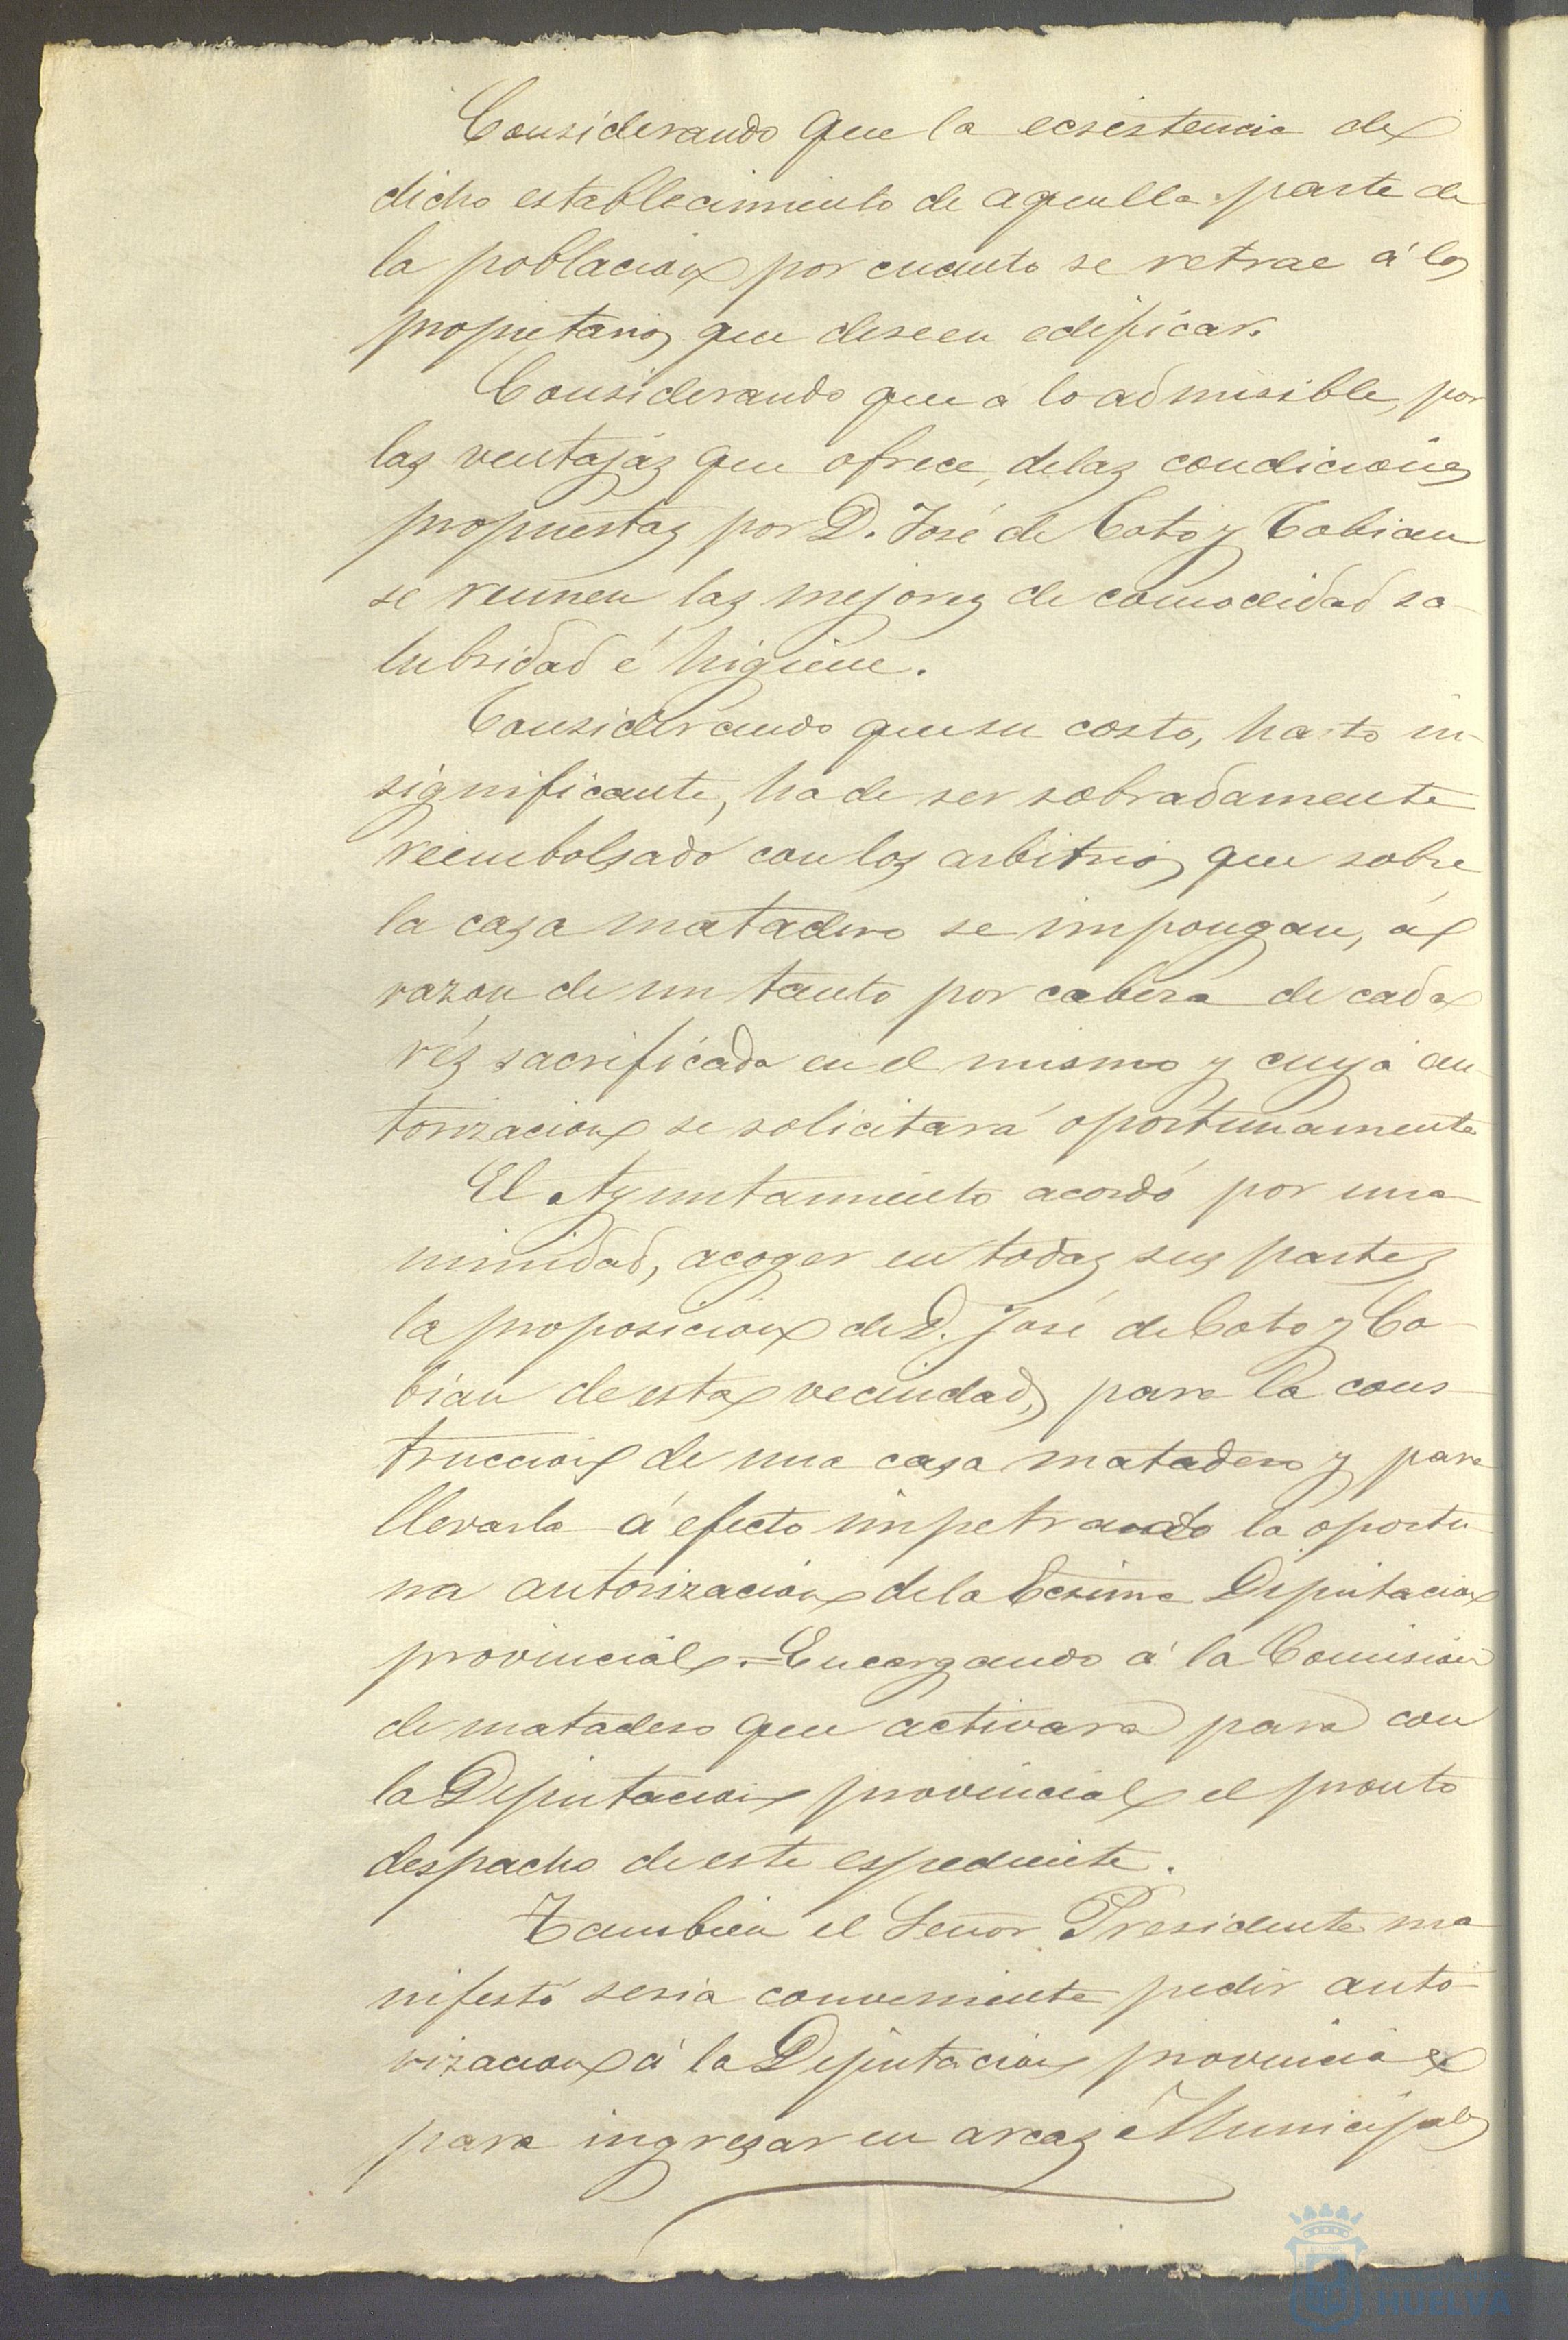 Considerando que la ecsistencia de
dicho establecimiento de aquella parte de
la poblacion por cuanto se retrae á los
propietarios que deseen edificar.
Considerando que a lo admisible, por
las ventajas que ofrece, de las condiciones
propuestas por D. José de Coto y Cobian
se reunen las mejores de comodidad sa-
lubridad é higiene.
Considerando que su costo, harto in-
significante, ha de ser sobradamente
reembolsado con los arbitrios que sobre
la casa matadero se impongan, á
razon de un tanto por cabesa de cada
rés sacrificada en el mismo y cuya au-
torizacion se solicitará oportunamente
El Ayuntamiento acordó por una-
nimidad, acoger en todas sus partes
la proposicion de D. José de Coto y Co-
bian de esta vecindad, para la cons-
truccion de una casa matadero y para
llevarla á efecto impetrando la oportu-
na autorizacion de la Ecsima Diputacion
provincial.=Encargando á la Comision
de matadero que activara para con
la Diputacion provincial el pronto
despacho de este espediente.
Tambien el Señor Presidente ma
nifestó seria conveniente pedir auto-
rizacion á la Diputacion provincial
para ingresar en arcas Municipales
HUELVA